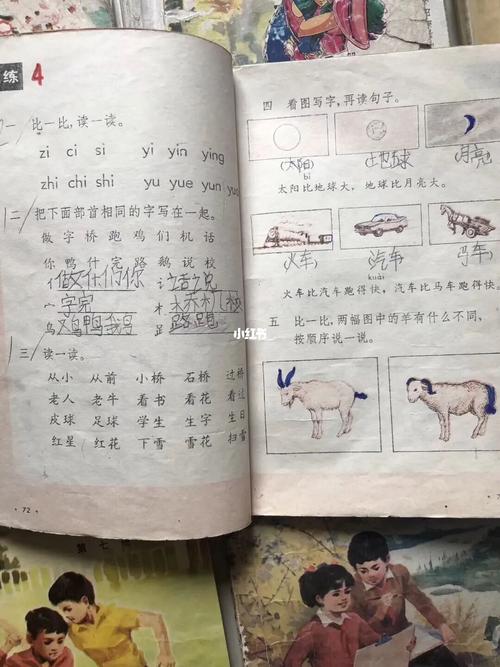 练 4
一 比一比,读一读。
zi ci si yi yin ying
zhi chi shi yu yue yun yuan
二 把下面部首相同的字写在一起。
做 字 桥 跑 鸡 们 机 话
你 鸭 什 完 路 鹅 说 校
亻 做什们你 讠 话说
宀 字完 木 桥机校
鸟 鸡鸭鹅 足 路跑
小红书
三 读一读。
从小 从前 小桥 石桥 过桥
老人 老牛 看书 看花 看过
皮球 足球 学生 生字 生日
红星 红花 下雪 雪花 扫雪
· 72 ·
四 看图写字,再读句子。
(太阳) (地球) (月亮)
bǐ
太阳比地球大,地球比月亮大。
(火车) (汽车) (马车)
kuài
火车比汽车跑得快,汽车比马车跑得快。
五 比一比,两幅图中的羊有什么不同,
按顺序说一说。
第七